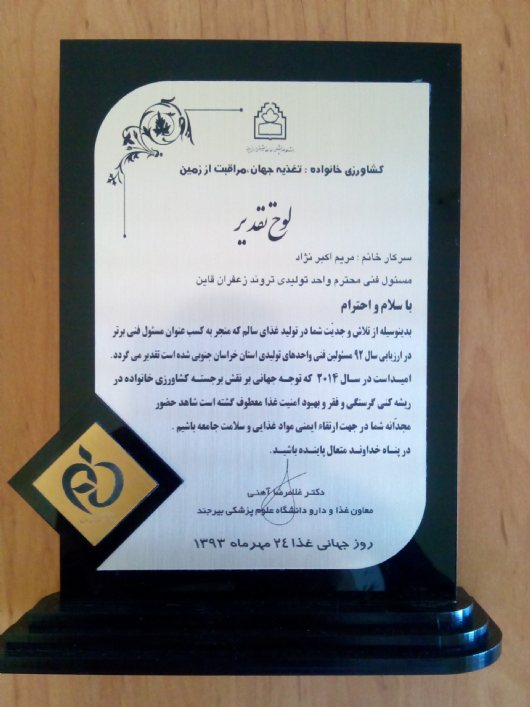 کشاورزی خانواده : تغذیه جهان،مراقبت از زمین
لوح تقدیر
سرکار خانم : مریم اکبر نژاد
مسئول فنی محترم واحد تولیدی تروند زعفران قاین
با سلام و احترام
بدینوسیله از تلاش و جدیّت شما در تولید غذای سالم که منجر به کسب عنوان مسئول فنی برتر
در ارزیابی سال ۹۲ مسئولین فنی واحدهای تولیدی استان خراسان جنوبی شده است تقدیر می گردد.
امیداست در سال ۲۰۱۴ که توجه جهانی بر نقش برجسته کشاورزی خانواده در
ریشه کنی گرسنگی و فقر و بهبود امنیت غذا معطوف گشته است شاهد حضور
مجدّانه شما در جهت ارتقاء ایمنی مواد غذایی و سلامت جامعه باشیم .
در پناه خداوند متعال پاینده باشید .
دکتر غلامرضا آهنی
معاون غذا و دارو دانشگاه علوم پزشکی بیرجند
روز جهانی غذا ۲۴ مهرماه ۱۳۹۳